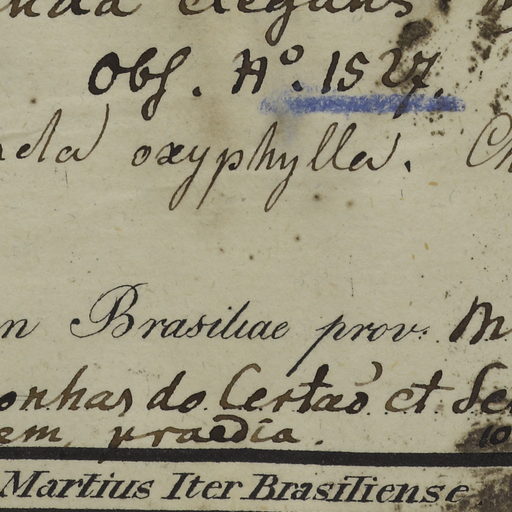 elegans
Obs. No. 1527.
oxyphylla. Ch
n Brasiliae prov. M
onhas do Certaõ et Se
em praedia. 10
Martius Iter Brasiliense